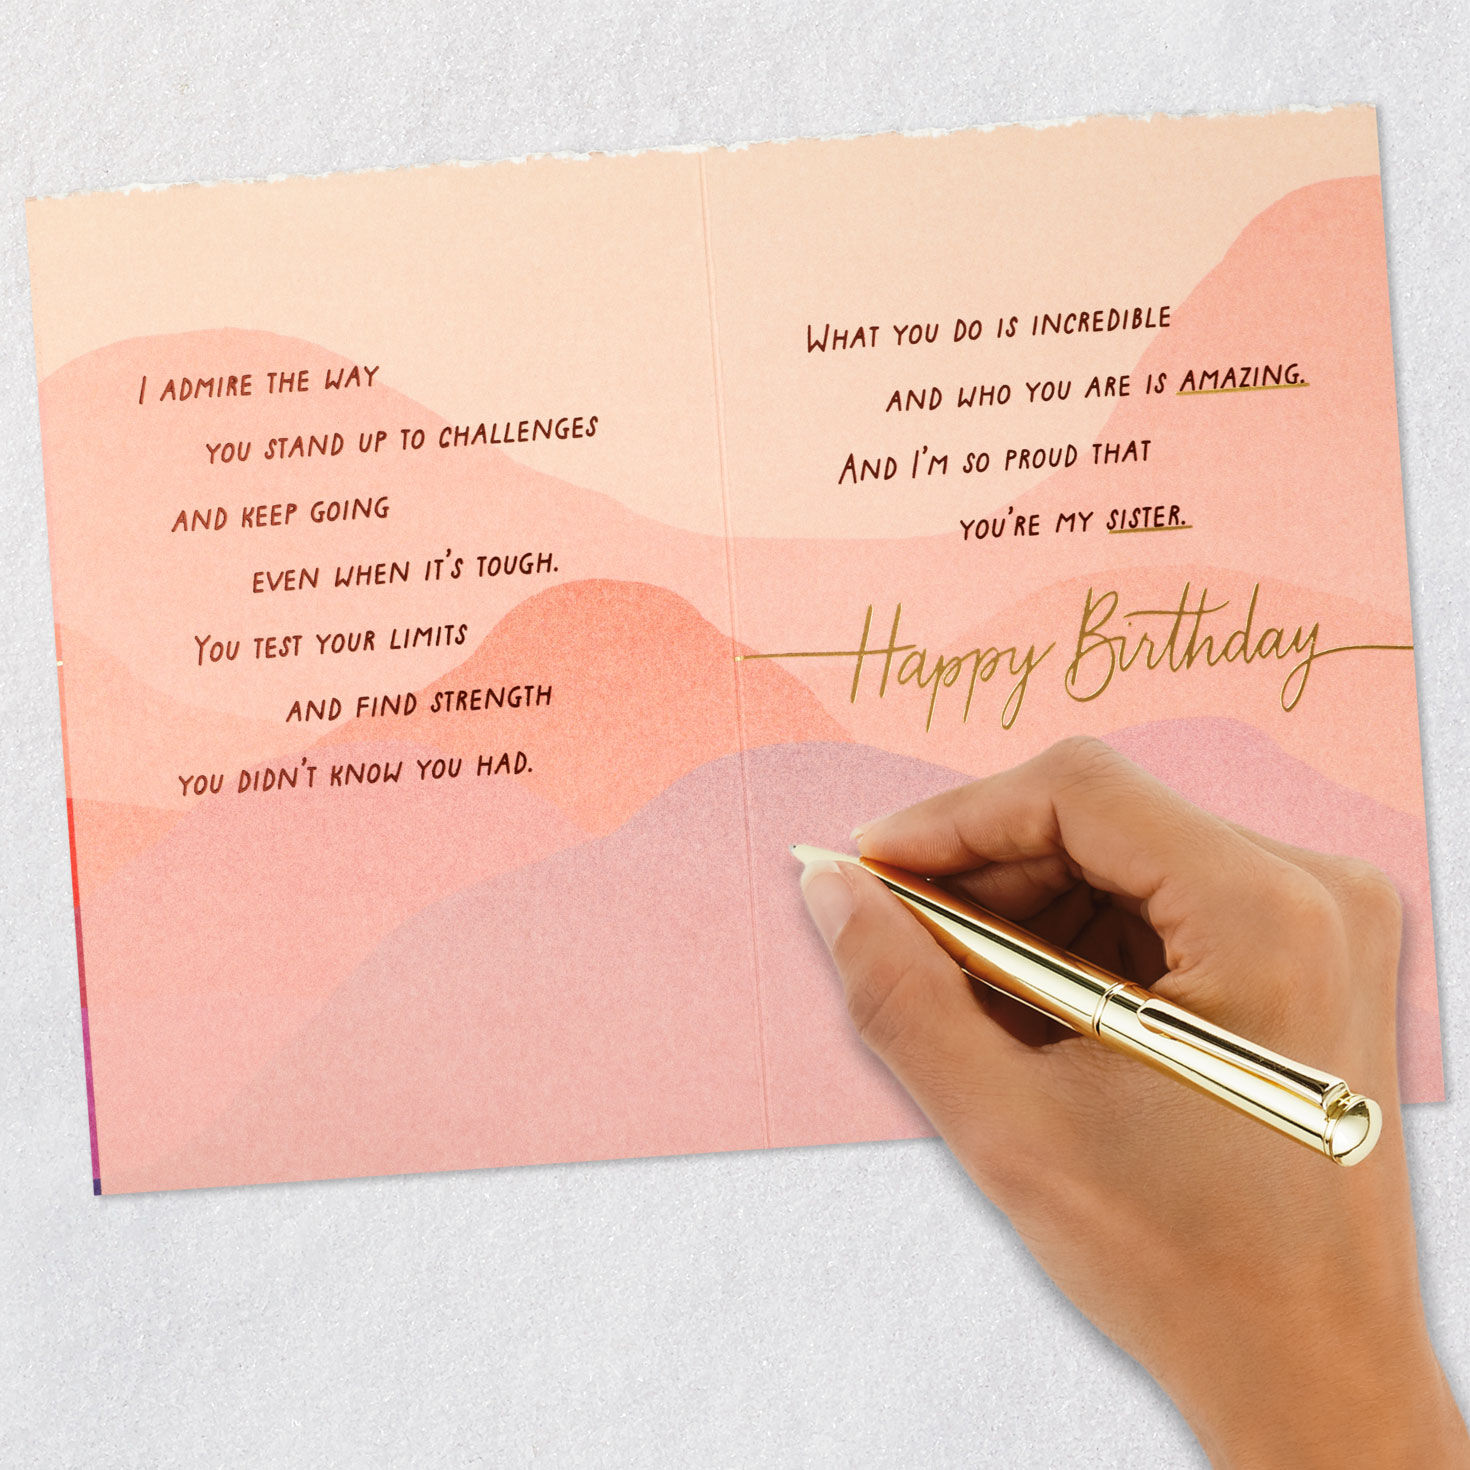 I ADMIRE THE WAY
YOU STAND UP TO CHALLENGES
AND KEEP GOING
EVEN WHEN IT'S TOUGH.
YOU TEST YOUR LIMITS
AND FIND STRENGTH
YOU DIDN'T KNOW YOU HAD.
WHAT YOU DO IS INCREDIBLE
AND WHO YOU ARE IS AMAZING.
AND I'M SO PROUD THAT
YOU'RE MY SISTER.
Happy Birthday